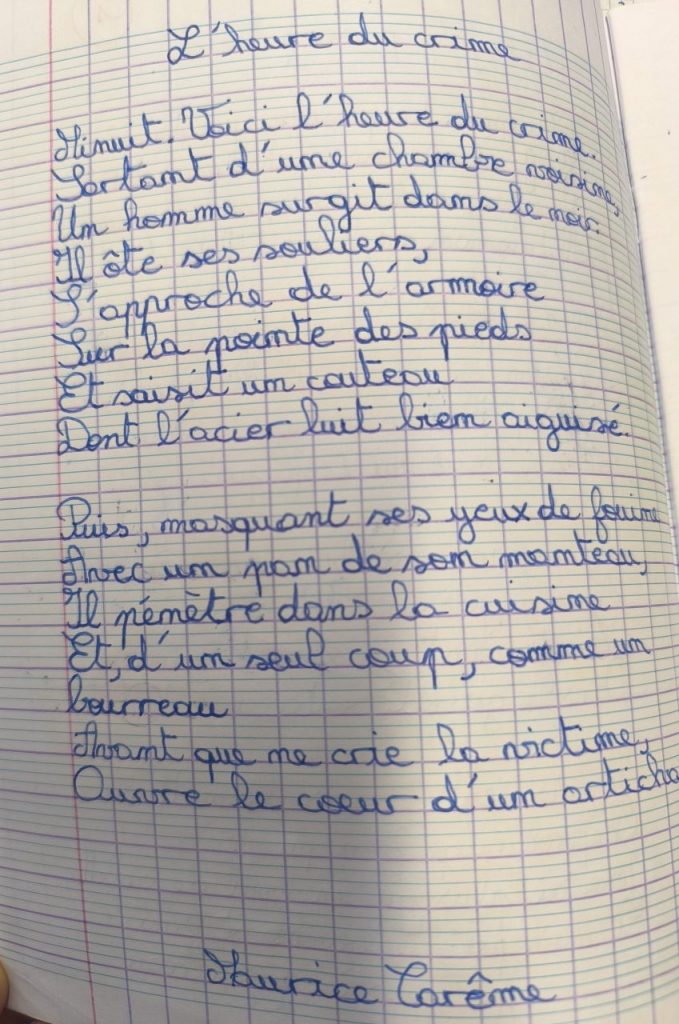 L'heure du crime
Minuit. Voici l'heure du crime.
Sortant d'une chambre voisine,
Un homme surgit dans le noir.
Il ôte ses souliers,
S'approche de l'armoire
Sur la pointe des pieds
Et saisit un couteau
Dont l'acier luit bien aiguisé.
Puis, masquant ses yeux de fouine
Avec un pan de son manteau,
Il pénètre dans la cuisine
Et, d'un seul coup, comme un
bourreau
Avant que ne crie la victime,
Ouvre le coeur d'un articha
Maurice Carême